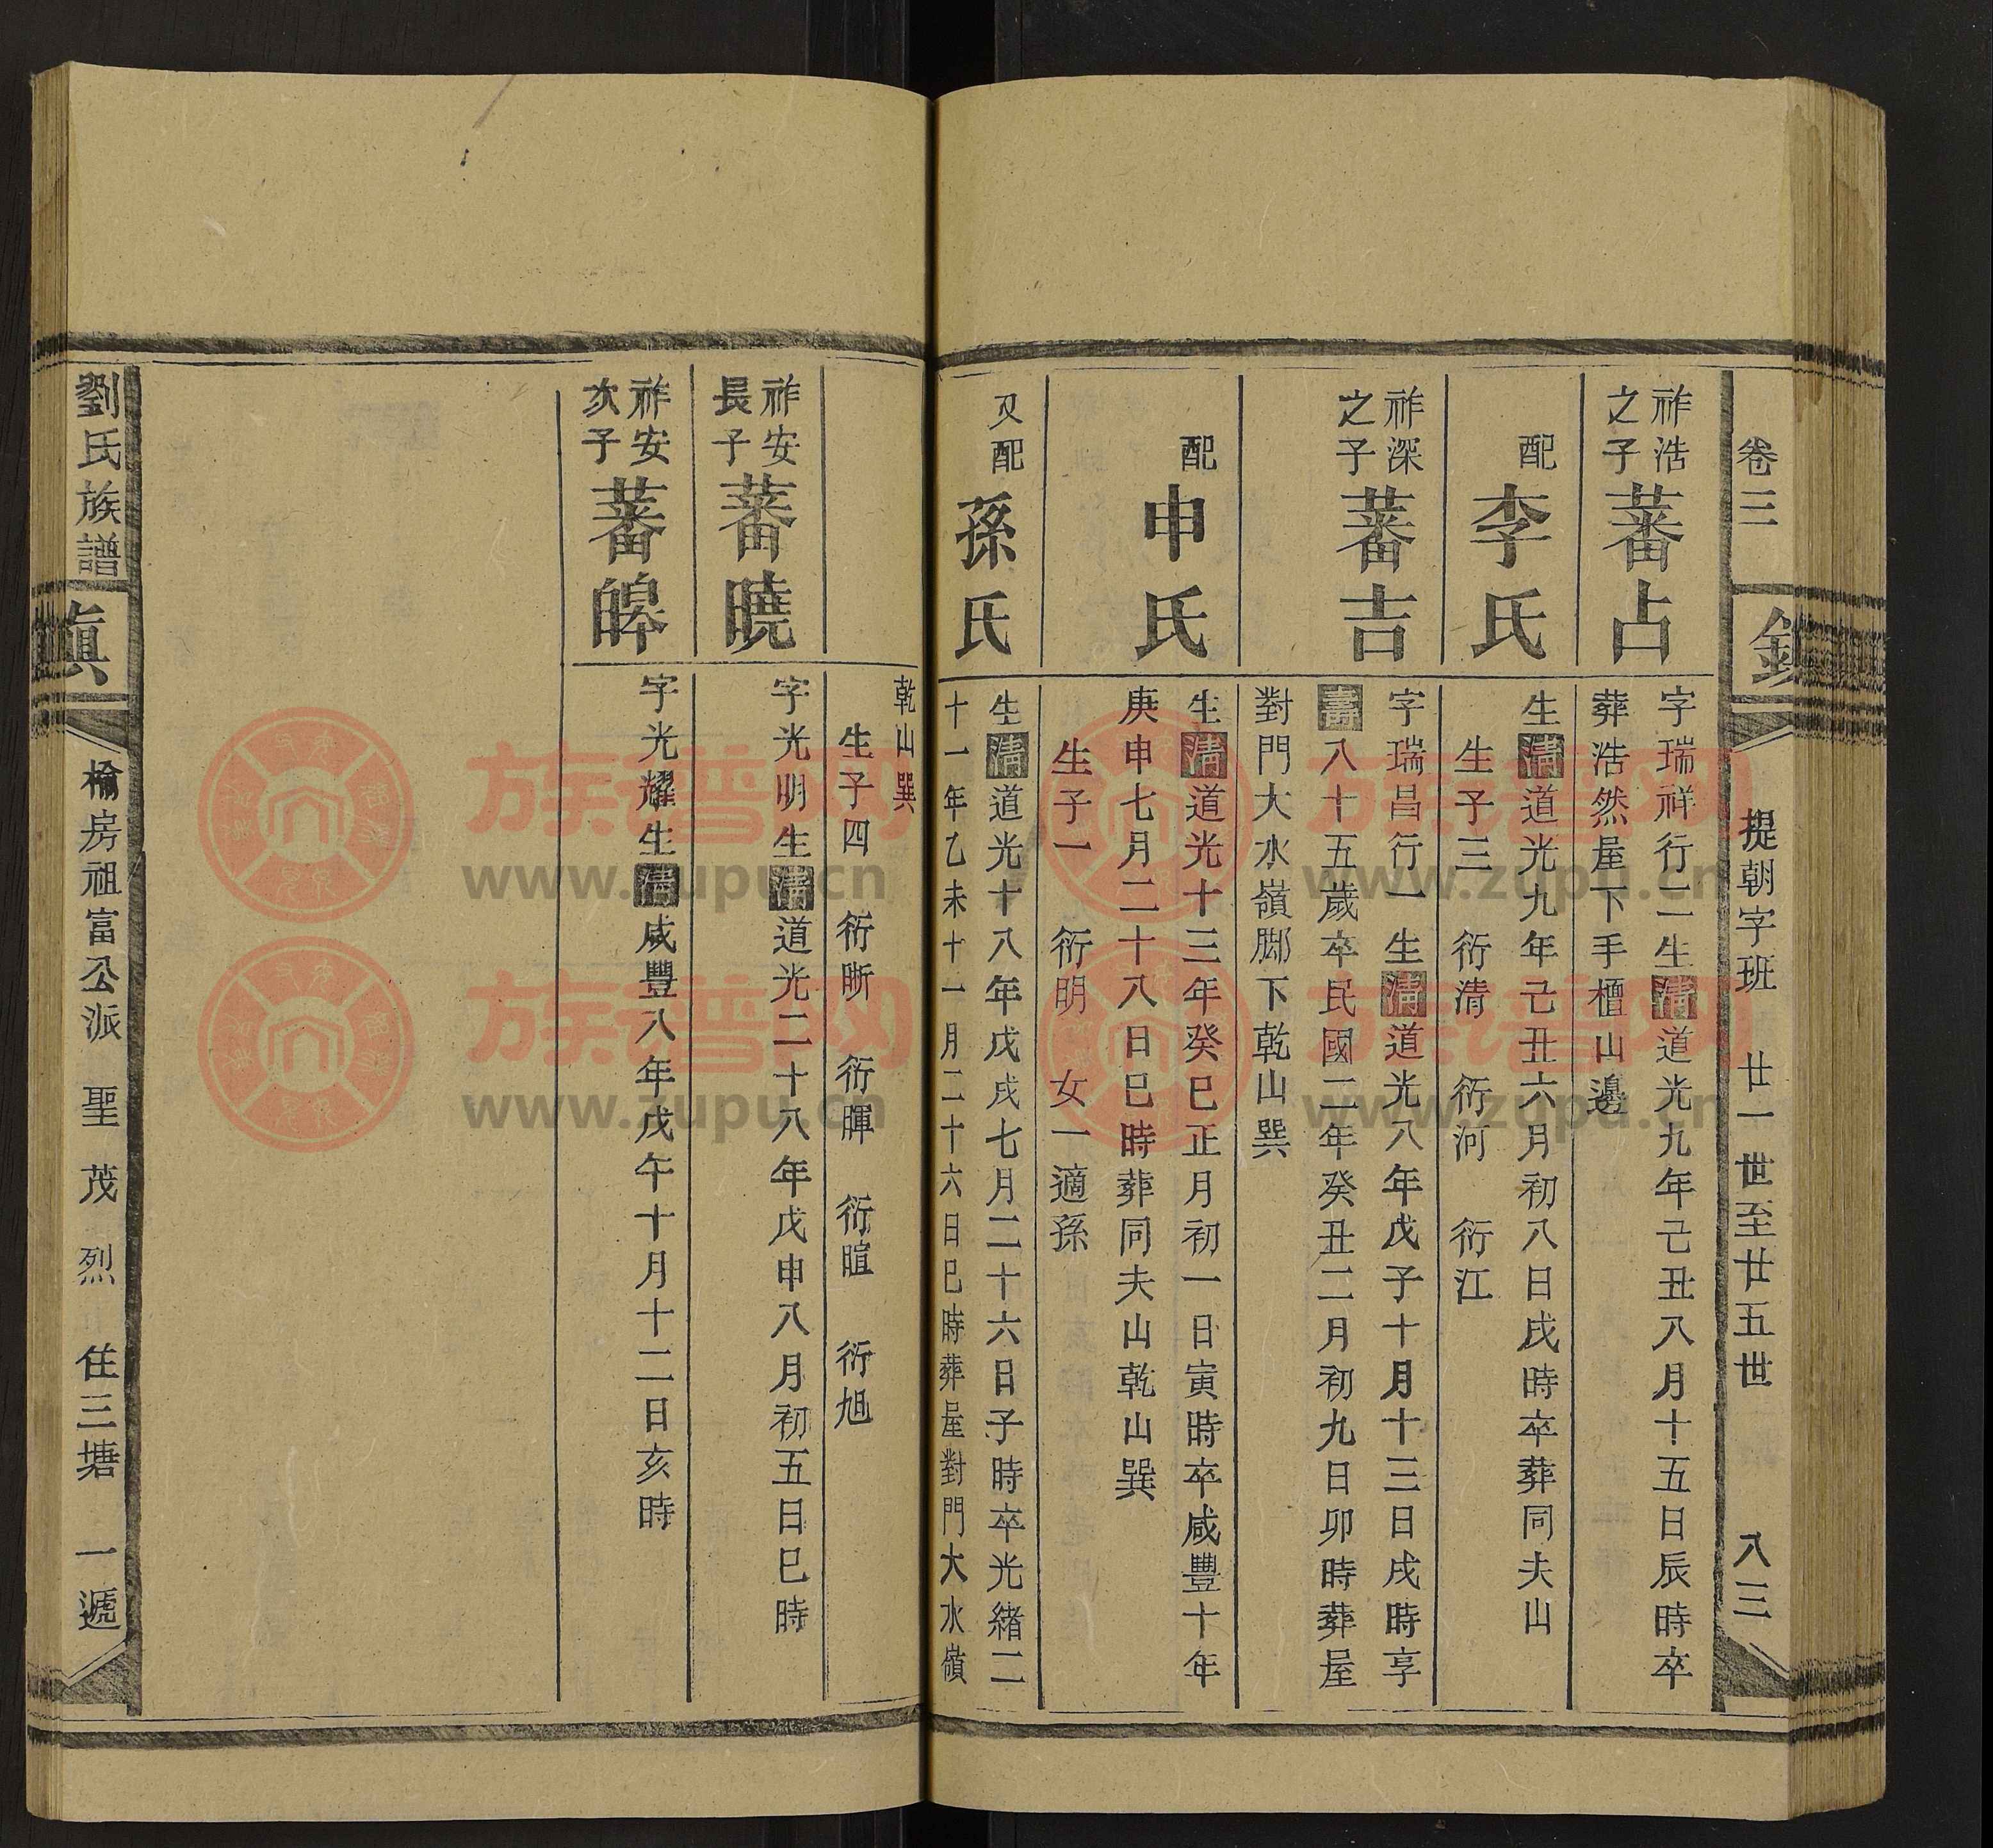 卷三
提朝字班 廿一世至廿五世 八三
祚浩之子 蕃占
字瑞祥行二生清道光九年己丑八月十五日辰時卒
葬浩然屋下手櫃山邊
配 李氏
生清道光九年己丑六月初八日戌時卒葬同夫山
生子三 衍清 衍河 衍江
祚深之子 蕃吉
字瑞昌行一生清道光八年戊子十月十三日戌時享
壽八十五歲卒民國二年癸丑二月初九日卯時葬屋
對門大水嶺脚下乾山巽
配 申氏
生清道光十三年癸巳正月初一日寅時卒咸豐十年
庚申七月二十八日巳時葬同夫山乾山巽
生子一 衍明 女一適孫
又配 孫氏
生清道光十八年戊戌七月二十六日子時卒光緒二
十一年乙未十一月二十六日巳時葬屋對門大水嶺
乾山巽
生子四 衍晣 衍暉 衍暄 衍旭
祚安長子 蕃曉
字光明生清道光二十八年戊申八月初五日巳時
祚安次子 蕃皞
字光耀生清咸豐八年戊午十月十二日亥時
劉氏族譜
榆房祖富公派 聖茂烈 住三塘 一遞
族譜网
www.zupu.cn
族譜网
www.zupu.cn
族譜网
www.zupu.cn
族譜网
www.zupu.cn